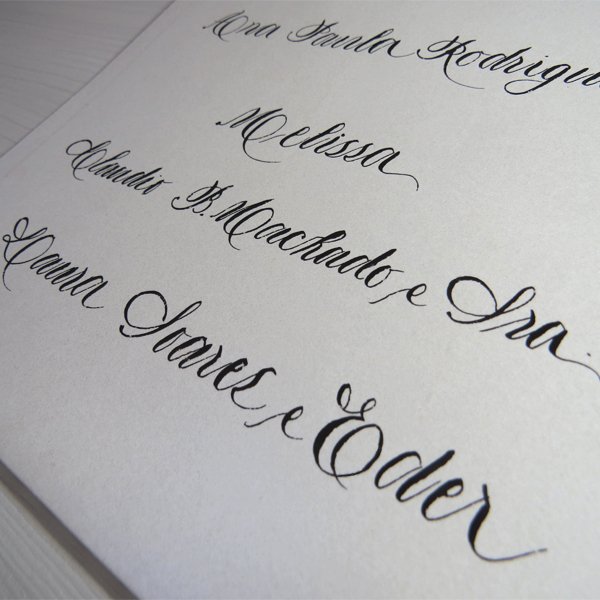 Ana Paula Rodrigu
Melissa
Claudio B. Machado e Sra.
Laura Soares e Eder